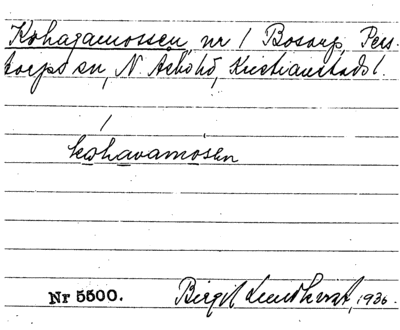 Kohagamossen, nr 1 Bosarp, Pers-
torps sn, N. Åsbo hd, Kristianstads l.
kohavamosen
Nr 5500. Birgit Lundkvist, 1936.